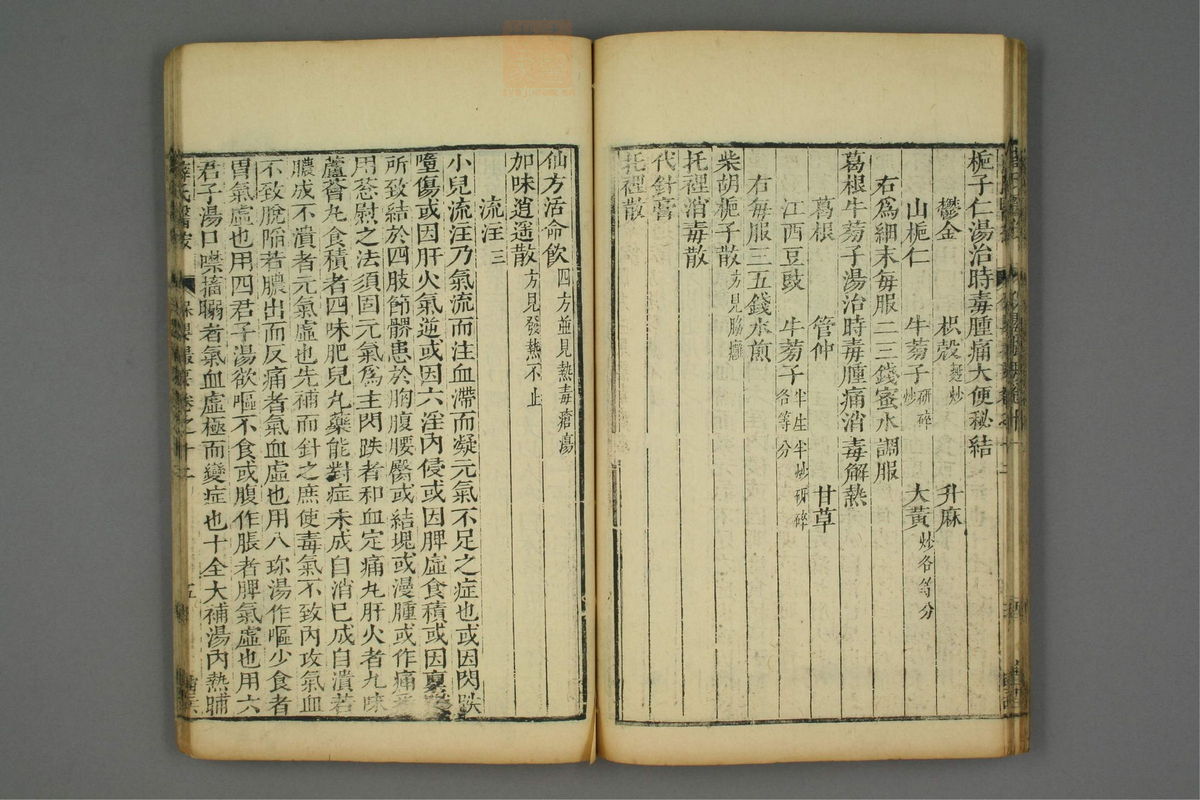 梔子仁湯治時毒腫痛大便秘結
鬱金　枳殼麩炒　升麻
山梔仁　牛蒡子研碎炒　大黃炒各等分
右爲細末每服二三錢蜜水調服
葛根牛蒡子湯治時毒腫痛消毒解熱
葛根　管仲　甘草
江西豆豉　牛蒡子半生半炒研碎各等分
右每服三五錢水煎
柴胡梔子散方見腦癰
托裡消毒散
代針膏
托裡散
仙方活命飲四方並見熱毒瘡瘍
加味逍遙散方見發熱不止
流注三
小兒流注乃氣流而注血滯而凝元氣不足之症也或因閃跌
墮傷或因肝火氣逆或因六淫內侵或因脾虛食積或因
所致結於四肢節髎患於胸腹腰臀或結塊或漫腫或作痛悉
用葱熨之法須固元氣爲主閃跌者和血定痛丸肝火者九味
蘆薈丸食積者四味肥兒丸藥能對症未成自消已成自潰若
膿成不潰者元氣虛也先補而針之庶使毒氣不致內攻氣血
不致脫陷若膿出而反痛者氣血虛也用八珍湯作嘔少食者
胃氣虛也用四君子湯欲嘔不食或腹作脹者脾氣虛也用六
君子湯口噤搐搦者氣血虛極而變症也十全大補湯內熱晡
薛氏醫按　保嬰撮要卷之十二　五